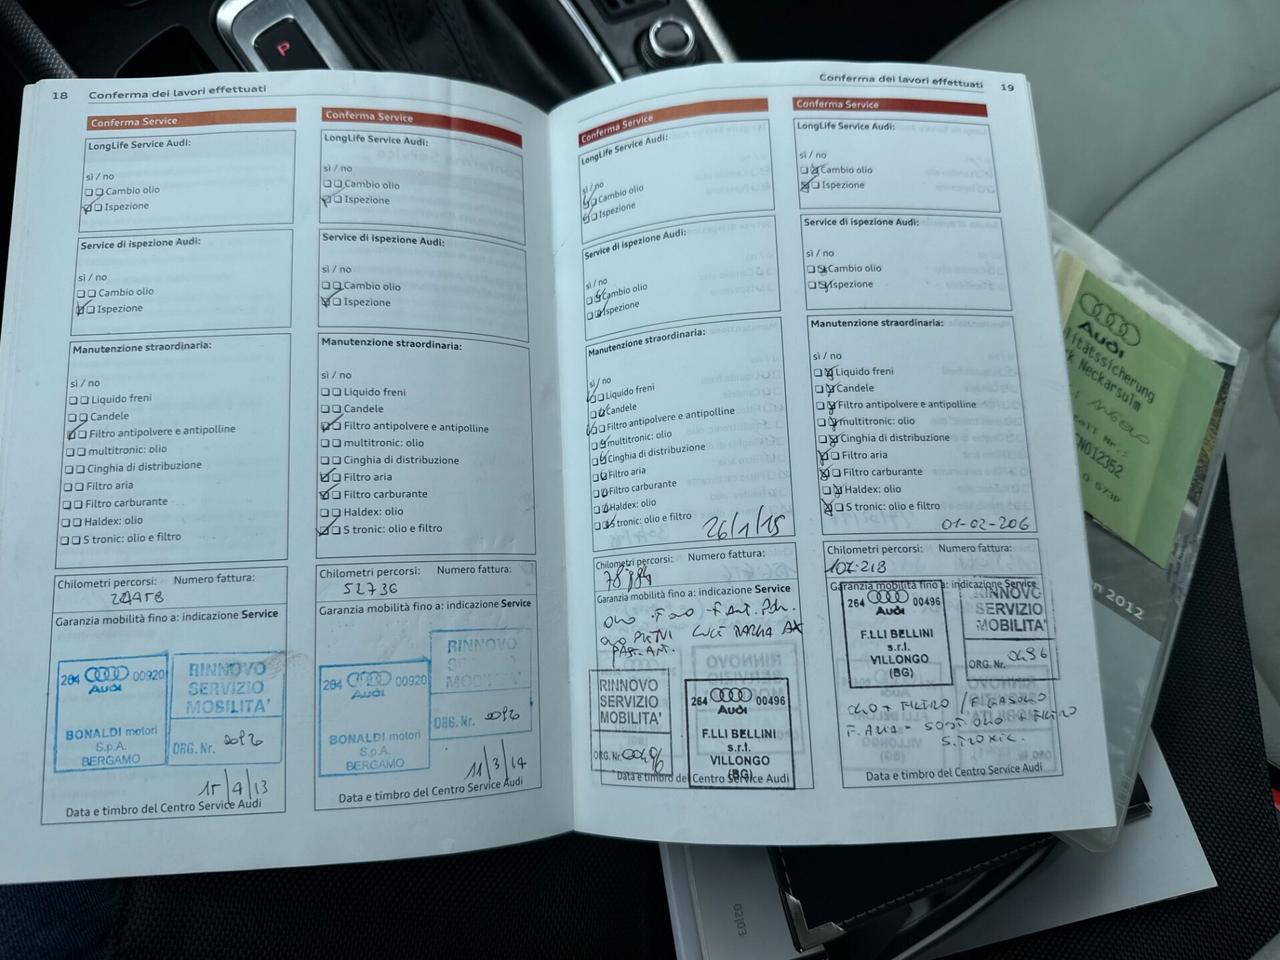 P
18 Conferma dei lavori effettuati
Conferma Service
LongLife Service Audi:
sì / no
Cambio olio
Ispezione
Service di ispezione Audi:
sì / no
Cambio olio
Ispezione
Manutenzione straordinaria:
sì / no
Liquido freni
Candele
Filtro antipolvere e antipolline
multitronic: olio
Cinghia di distribuzione
Filtro aria
Filtro carburante
Haldex: olio
S tronic: olio e filtro
Chilometri percorsi: Numero fattura:
Garanzia mobilità fino a: indicazione Service
264 00920
Audi
BONALDI motori
S.p.A.
BERGAMO
RINNOVO
SERVIZIO
MOBILITA'
ORG. Nr.
15/4/13
Data e timbro del Centro Service Audi
Conferma Service
LongLife Service Audi:
sì / no
Cambio olio
Ispezione
Service di ispezione Audi:
sì / no
Cambio olio
Ispezione
Manutenzione straordinaria:
sì / no
Liquido freni
Candele
Filtro antipolvere e antipolline
multitronic: olio
Cinghia di distribuzione
Filtro aria
Filtro carburante
Haldex: olio
S tronic: olio e filtro
Chilometri percorsi: Numero fattura:
52736
Garanzia mobilità fino a: indicazione Service
264 00920
Audi
BONALDI motori
S.p.A.
BERGAMO
RINNOVO
SERVIZIO
MOBILITA'
ORG. Nr.
11/3/14
Data e timbro del Centro Service Audi
Conferma dei lavori effettuati 19
Conferma Service
LongLife Service Audi:
sì / no
Cambio olio
Ispezione
Service di ispezione Audi:
sì / no
Cambio olio
Ispezione
Manutenzione straordinaria:
sì / no
Liquido freni
Candele
Filtro antipolvere e antipolline
multitronic: olio
Cinghia di distribuzione
Filtro aria
Filtro carburante
Haldex: olio
S tronic: olio e filtro
26/1/15
Chilometri percorsi: Numero fattura:
Garanzia mobilità fino a: indicazione Service
RINNOVO
SERVIZIO
MOBILITA'
ORG. Nr. 00496
264 00496
Audi
F.LLI BELLINI
s.r.l.
VILLONGO
(BG)
Data e timbro del Centro Service Audi
Conferma Service
LongLife Service Audi:
sì / no
Cambio olio
Ispezione
Service di ispezione Audi:
sì / no
Cambio olio
Ispezione
Manutenzione straordinaria:
sì / no
Liquido freni
Candele
Filtro antipolvere e antipolline
multitronic: olio
Cinghia di distribuzione
Filtro aria
Filtro carburante
Haldex: olio
S tronic: olio e filtro
01-02-206
Chilometri percorsi: Numero fattura:
102.213
Garanzia mobilità fino a: indicazione Service
264 00496
Audi
F.LLI BELLINI
s.r.l.
VILLONGO
(BG)
RINNOVO
SERVIZIO
MOBILITA'
ORG. Nr. 0496
OLIO + FILTRO / F. GASOLIO
F. ARIA - SOST. OLIO + FILTRO
S. TRONIC.
Data e timbro del Centro Service Audi
Audi
Neckarsulm
2012
02|03